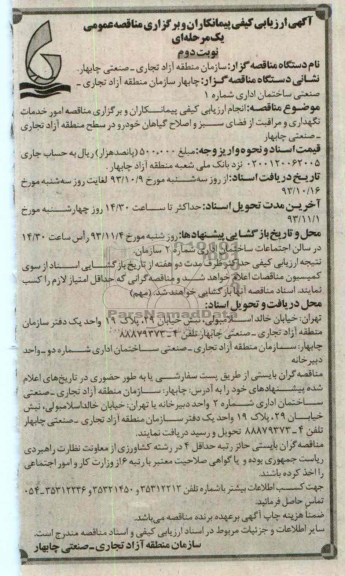 آگهی ارزیابی کیفی پیمانکاران و برگزاری مناقصه عمومی
یک مرحله‌ای
نوبت دوم
نام دستگاه مناقصه گزار: سازمان منطقه آزاد تجاری ـ صنعتی چابهار.
نشانی دستگاه مناقصه گزار: چابهار سازمان منطقه آزاد تجاری ـ
صنعتی ساختمان اداری شماره ۱
موضوع مناقصه: انجام ارزیابی کیفی پیمانکاران و برگزاری مناقصه امور خدمات
نگهداری و مراقبت از فضای سبز و اصلاح گیاهان خودرو در سطح منطقه آزاد تجاری
ـ صنعتی چابهار
قیمت اسناد و نحوه واریز وجه: مبلغ ۵۰۰،۰۰۰ (پانصدهزار) ریال به حساب جاری
۰۲۰۰۱۲۰۰۶۲۰۰۵ نزد بانک ملی شعبه منطقه آزاد چابهار.
تاریخ دریافت اسناد: از روز سه‌شنبه مورخ ۹۳/۱۰/۹ لغایت روز سه‌شنبه مورخ
۹۳/۱۰/۱۶
آخرین مدت تحویل اسناد: حداکثر تا ساعت ۱۴/۳۰ روز چهارشنبه مورخ
۹۳/۱۱/۱
محل و تاریخ بازگشایی پیشنهادها: روز شنبه مورخ ۹۳/۱۱/۴ رأس ساعت ۱۴/۳۰
در سالن اجتماعات ساختمان اداری شماره ۲ سازمان.
نتیجه ارزیابی کیفی حداکثر ظرف مدت دو هفته از تاریخ بازگشایی اسناد از سوی
کمیسیون مناقصات اعلام خواهد شد و مناقصه‌گرانی که حداقل امتیاز لازم را کسب
نمایند، اسناد مناقصه آنها بازگشایی خواهند شد. (مهم)
محل دریافت و تحویل اسناد:
تهران: خیابان خالد اسلامبولی، نبش خیابان ۲۹، پلاک ۱۹ واحد یک دفتر سازمان
منطقه آزاد تجاری ـ صنعتی چابهار تلفن ۴ـ۸۸۸۷۹۳۷۳
چابهار: سازمان منطقه آزاد تجاری ـ صنعتی ساختمان اداری شماره دو ـ واحد
دبیرخانه
مناقصه گران بایستی از طریق پست سفارشی یا به طور حضوری در تاریخ‌های اعلام
شده پیشنهادهای خود را به آدرس: چابهار: سازمان منطقه آزاد تجاری ـ صنعتی
ساختمان اداری شماره ۲ واحد دبیرخانه یا تهران: خیابان خالد اسلامبولی، نبش
خیابان ۲۹، پلاک ۱۹ واحد یک دفتر سازمان منطقه آزاد تجاری ـ صنعتی چابهار
تلفن ۴ـ۸۸۸۷۹۳۷۳ تحویل و رسید دریافت نمایند.
مناقصه گران بایستی حائز رتبه حداقل ۴ در رشته کشاورزی از معاونت نظارت راهبردی
ریاست جمهوری بوده و یا گواهی صلاحیت معتبر با رتبه ۶ از وزارت کار و امور اجتماعی
را اخذ کرده باشند.
جهت کسب اطلاعات بیشتر با شماره تلفن ۳۵۳۱۲۲۱۲ و ۳۵۳۲۱۴۵۰ و ۳۵۳۱۲۲۳۶ـ۰۵۴
تماس حاصل فرمائید.
ضمناً هزینه چاپ آگهی برعهده برنده مناقصه می‌باشد.
سایر اطلاعات و جزئیات مربوط در اسناد ارزیابی کیفی و اسناد مناقصه مندرج است.
سازمان منطقه آزاد تجاری ـ صنعتی چابهار